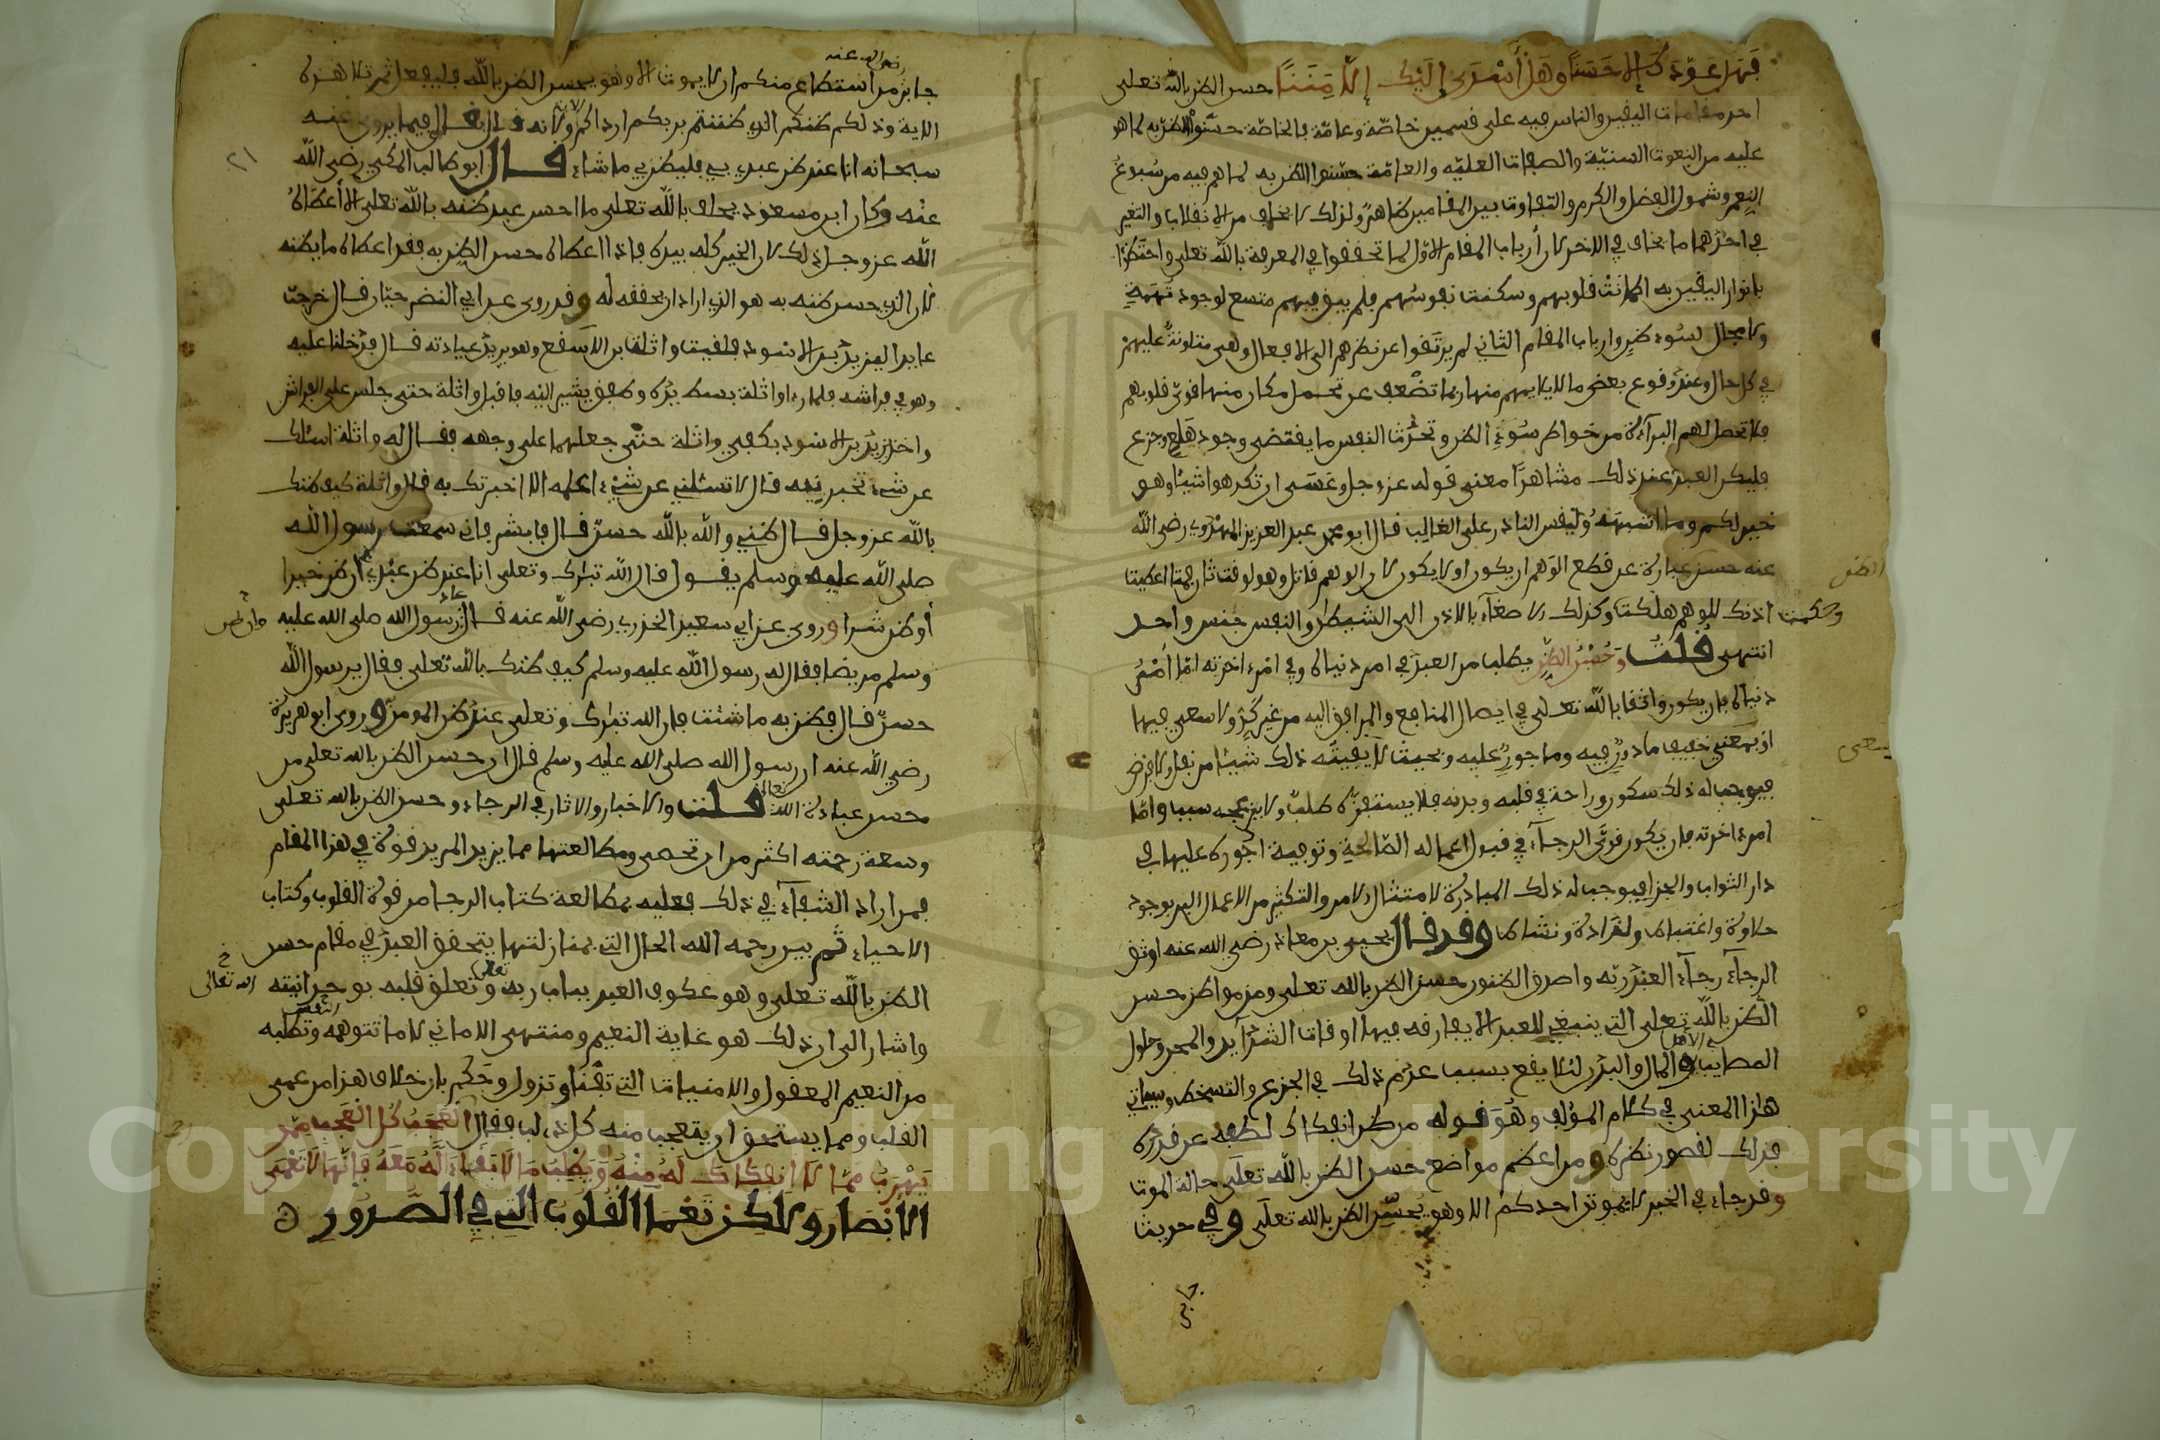 فهل عودك الا حسنا وهل أسدى إليك إلا مننا حسن الظن بالله تعلى
احد مقامات اليقين والناس فيه على قسمين خاصة وعامة فالخاصة حسنوا الظن به لما هو
عليه من النعوت السنية والصفات العلية والعامة حسنوا الظن به لما هم فيه من سبوغ
النعم وشمول الفضل والكرم والتفاوت بين المقامين ظاهر ولذلك لا يخاف من الانقلاب والتغير
في احدهما ما يخاف في الاخر لان أرباب المقام الاول لما تحققوا في المعرفة بالله تعلى واحتظوا
بانوار اليقين به اطمأنت قلوبهم وسكنت نفوسهم فلم يبق فيهم متسع لوجود تهمة
ولا مجال لسوء ظن وارباب المقام الثاني لم يرتقوا عن نظرهم الى الافعال وهي متلونة عليهم
في كل حال وعند وقوع بعض ما لا يلايمهم منها ربما تضعف عن تحمل مكان منها قوى قلوبهم
فلا تحصل لهم البرآءة من خواطر سوء الظن وتحدث النفس ما يقتضى وجود هلع وجزع
فليكن العبد عند ذلك مشاهدا معنى قوله عز وجل وعسى ان تكرهوا شيئا وهو
خير لكم وما اشبهه وليقس النادر على الغالب قال ابو محمد عبد العزيز المهدوي رضي الله
عنه حسن عبارة عن قطع الوهم ان يكون او لا يكون لان الوهم قاتل وهو لوقت ثان فمتى اعطيت
الظن
اذنك للوهم هلكت وكذلك الاصغآء بالاذن الى الشيطان والنفس جنس واحد
وحكمت
انتهى قلت وحسن الظن يطلب من العبد في امر دنياه وفي امر اخرته اما امر
دنياه فان يكون واثقا بالله تعلى في ايصال المنافع والمرافق اليه من غير كد ولا سعي فيها
او بسعي خفيف ماذون فيه وماجور عليه وبحيث لا يفيته ذلك شيئا من نفل ولا فرض
يسعى
فيوجب له ذلك سكون وراحة في قلبه وبدنه فلا يستفزه طلب ولا يزعجه سبب واما
امر اخرته فان يكون قوي الرجآء في قبول اعماله الصالحة وتوفية اجوره عليها في
دار الثواب والجزا فيوجب له ذلك المبادرة لامتثال الامر والتكثير من الاعمال البر بوجود
حلاوة واغتباط ولذاذة ونشاط وقد قال يحيى بن معاذ رضي الله عنه اوثق
الرجآء رجآء العبد ربه واصدق الظنون حسن الظن بالله تعلى ومن مواطن حسن
الظن بالله تعلى التي ينبغي للعبد الا يفارقه فيها اوقات الشدآيد والمحن وحلول
المصايب في الاهل والمال والبدن لئلا يقع بسبب عدم ذلك في الجزع والتسخط وسياتي
هذا المعنى في كلام المؤلف وهو قوله من ظن انفكاك لطفه عن قدره
فذلك لقصور نظره ومن اعظم مواضع حسن الظن بالله تعلى حالة الموت
وقد جاء في الخبر لا يموتن احدكم الا وهو يحسن الظن بالله تعلى وفي حديث
جابر
رضي الله عنه
جابر من استطاع منكم ان لا يموت الا وهو يحسن الظن بالله فليفعل ثم تلا هذه
الاية وذلكم ظنكم الذي ظننتم بربكم ارداكم ولانه قال تعالى فيما يروى عنه
سبحانه انا عند ظن عبدي بي فليظن بي ما شاء قال ابو طالب المكي رضي الله
٢١
عنه وكان ابن مسعود يحلف بالله تعلى ما احسن عبد ظنه بالله تعلى الا أعطاه
الله عز وجل ذلك لان الخير كله بيده فاذا اعطاه حسن الظن به فقد اعطاه ما يظنه
لان الذي حسن ظنه به هو الذي اراد ان يحققه له وقد روى عن ابي النضر حيان قال خرجت
عايدا ليزيد بن الاسود فلقيت واثلة بن الاسقع وهو يريد عيادته قال فدخلنا عليه
وهو في فراشه فلما رءا واثلة بسط يده وطفق يشير اليه فاقبل واثلة حتى جلس على الفراش
واخذ يزيد بن الاسود بكفي واثلة حتى جعلهما على وجهه فقال له واثلة اسئلك
عن شيء تخبرنيه قال لا تسئلني عن شيء اعلمه الا اخبرتك به قال واثلة كيف ظنك
بالله عز وجل قال ظني والله بالله حسن قال فابشر فاني سمعت رسول الله
صلى الله عليه وسلم يقول قال الله تبارك وتعلى انا عند ظن عبدي بي ان ظن خيرا
أو ظن شرا وروى عن ابي سعيد الخدري رضي الله عنه قال عاد رسول الله صلى الله عليه
وان ظن
وسلم مريضا فقال له رسول الله عليه وسلم كيف ظنك بالله تعلى فقال يرسول الله
حسن قال فظن به ما شئت فان الله تبارك وتعلى عند ظن المومن وروى ابو هريرة
رضي الله عنه ان رسول الله صلى الله عليه وسلم قال ان حسن الظن بالله تعلى من
حسن عبادة الله تعالى قلت والاخبار والاثار في الرجاء وحسن الظن بالله تعلى
وسعة رحمته اكثر من ان تحصى ومطالعتها مما يزيد المريد قوة في هذا المقام
فمن اراد الشفآء في ذلك فعليه بمطالعة كتاب الرجا من قوت القلوب وكتاب
الاحياء ثم بين رحمه الله الحال التي بمنازلتها يتحقق العبد في مقام حسن
الظن بالله تعلى وهو عكوف العبد بباب ربه تعالى وتعلق قلبه بوحدانيته
خ الله تعالى
واشار الى ان ذلك هو غاية النعيم ومنتهى الاماني لا ما تتوهمه النفس وتطلبه
من النعيم المعقول والامنيات التي تفنى وتزول وحكم بان خلاف هذا من عمى
القلب ومما يستحق ان يتعجب منه كل ذي لب فقال العجب كل العجب ممن
يهرب مما لا انفكاك له منه ويطلب ما لا بقاء له معه فإنها لا تعمى
الابصار ولاكن تعمى القلوب التي في الصدور
Copyright © King Saud University